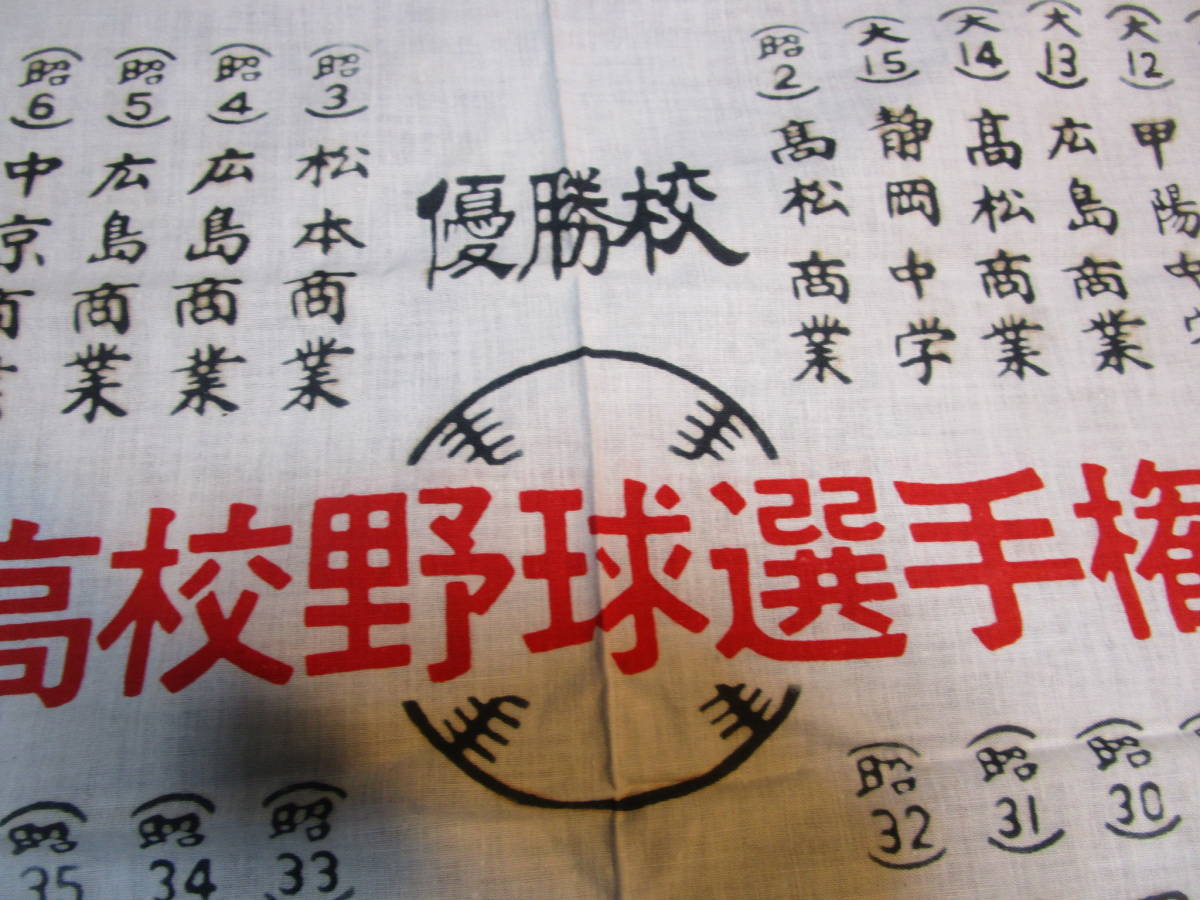 (大12) 甲陽中学
(大13) 広島商業
(大14) 高松商業
(大15) 静岡中学
(昭2) 高松商業
優勝校
(昭3) 松本商業
(昭4) 広島商業
(昭5) 広島商業
(昭6) 中京商業
高校野球選手権
(昭30)
(昭31)
(昭32)
(昭33)
(昭34)
(昭35)